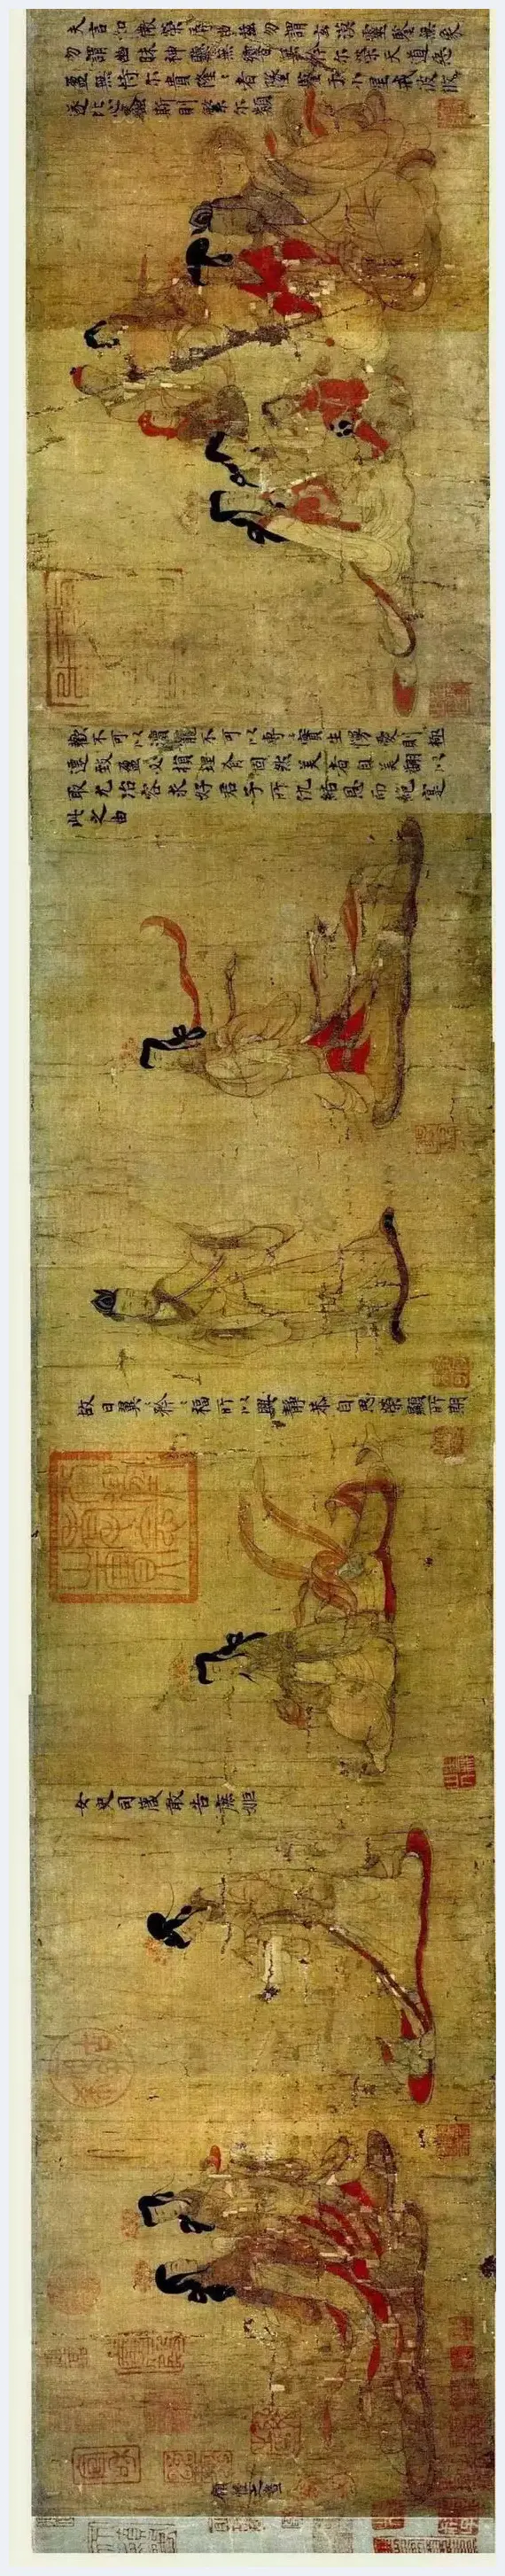 夫言如微榮辱由茲勿謂玄漠靈鑒無象
勿謂幽昧神聽無響無矜尔榮天道惡
盈無恃尔貴隆〻者墜鑒于小星戒彼攸
遂比心螽斯則繁尔類
歡不可以黷寵不可以專〻實生慢愛則極
遷致盈必損理有固然美者自美翩以
取尤冶容求好君子所仇結恩而絕寔
此之由
故曰翼〻矜〻福所以興靜恭自思榮顯所期
女史司箴敢告庶姬
顧愷之畫